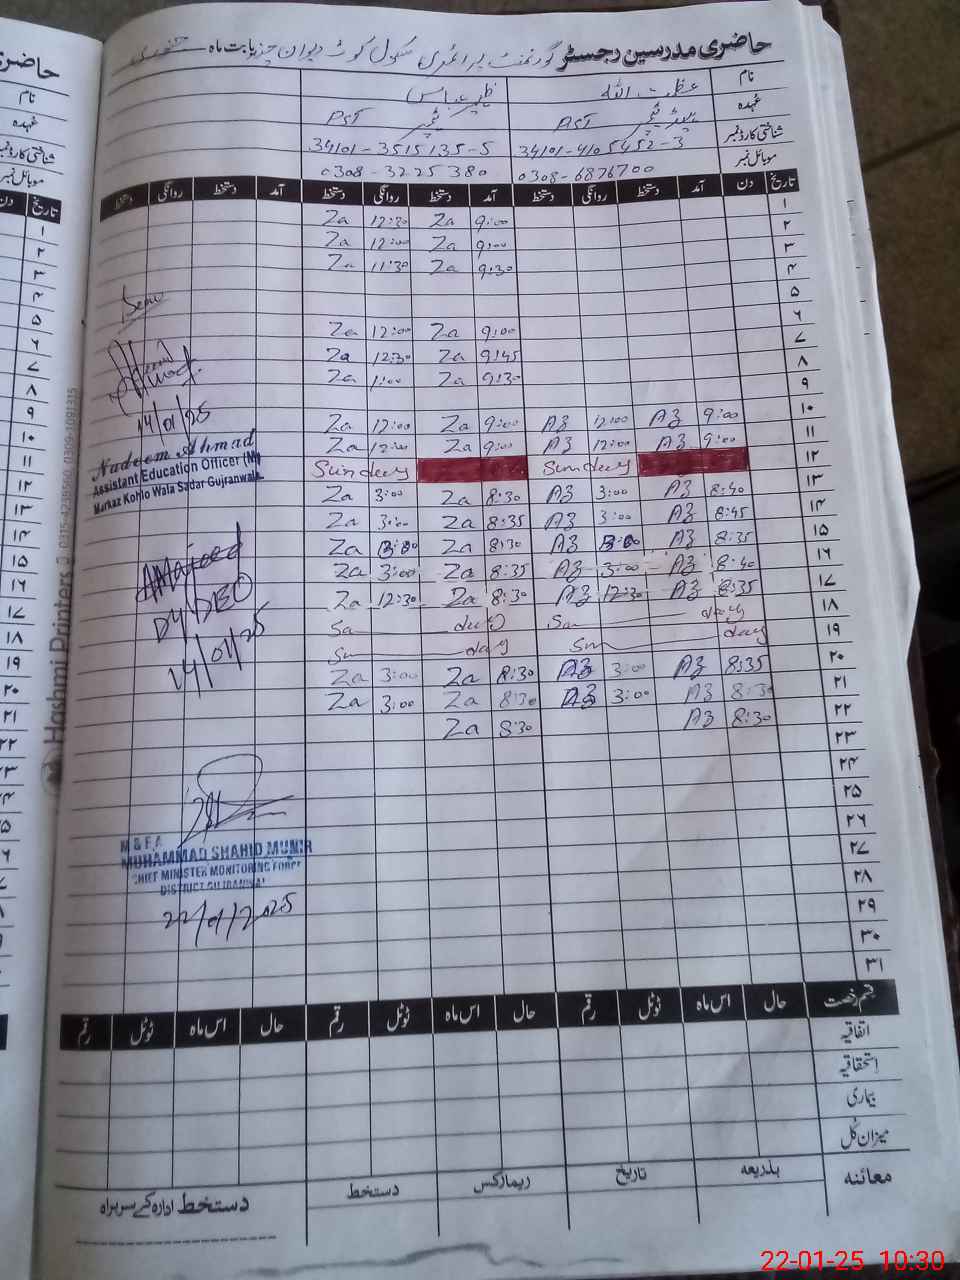 حاضری مدرسین رجسٹر گورنمنٹ پرائمری سکول کوٹ دیوان چند بابت ماہ جنوری
نام عظمت اللہ
عہدہ ہیڈ ٹیچر PST ٹیچر PST
شناختی کارڈ نمبر 34101-4105452-3 34101-3515135-5
موبائل نمبر 0308-6876700 0308-3225380
تاریخ دن آمد دستخط روانگی دستخط آمد دستخط روانگی دستخط آمد دستخط روانگی دستخط
۱ 9:00 Za 12:30 Za
۲ 9:00 Za 12:00 Za
۳ 9:30 Za 11:30 Za
۴
۵
۶ 9:00 Za 12:00 Za
۷ 9:45 Za 12:30 Za
۸ 9:30 Za 1:00 Za
۹
۱۰ 9:00 Az 12:00 Az 9:00 Za 12:00 Za
۱۱ 9:00 Az 12:00 Az 9:00 Za 12:00 Za
۱۲ Sunday Sunday
۱۳ 8:40 Az 3:00 Az 8:30 Za 3:00 Za
۱۴ 8:45 Az 3:00 Az 8:35 Za 3:00 Za
۱۵ 8:35 Az 3:00 Az 8:30 Za 3:00 Za
۱۶ 8:40 Az 3:00 Az 8:35 Za 3:00 Za
۱۷ 8:35 Az 12:30 Az 8:30 Za 12:30 Za
۱۸ Sa day Sa day
۱۹ Sun day Sun day
۲۰ 8:35 Az 3:00 Az 8:30 Za 3:00 Za
۲۱ 8:30 Az 3:00 Az 8:30 Za 3:00 Za
۲۲ 8:30 Az 8:30 Za
۲۳
۲۴
۲۵
۲۶
۲۷
۲۸
۲۹
۳۰
۳۱
14/01/25
Nadeem Ahmad
Assistant Education Officer (M
Markaz Kohlo Wala Sadar Gujranwala.
AMajeed
Dy DEO
14/01/25
M & E A
MUHAMMAD SHAHID MUNIR
CHIEF MINISTER MONITORING FORCE
DISTRICT GUJRANWALA
22/01/2025
قسم رخصت حال اس ماہ ٹوٹل رقم حال اس ماہ ٹوٹل رقم حال اس ماہ ٹوٹل رقم
اتفاقیہ
استحقاقیہ
بیماری
میزان کل
معائنہ بذریعہ تاریخ ریمارکس دستخط دستخط ادارہ کے سربراہ
Hashmi Printers 0315-4239560, 0309-1081315
حاضری
نام
عہدہ
شناختی کارڈ نمبر
موبائل نمبر
تاریخ دن
۱
۲
۳
۴
۵
۶
۷
۸
۹
۱۰
۱۱
۱۲
۱۳
۱۴
۱۵
۱۶
۱۷
۱۸
۱۹
۲۰
۲۱
22-01-25 10:30